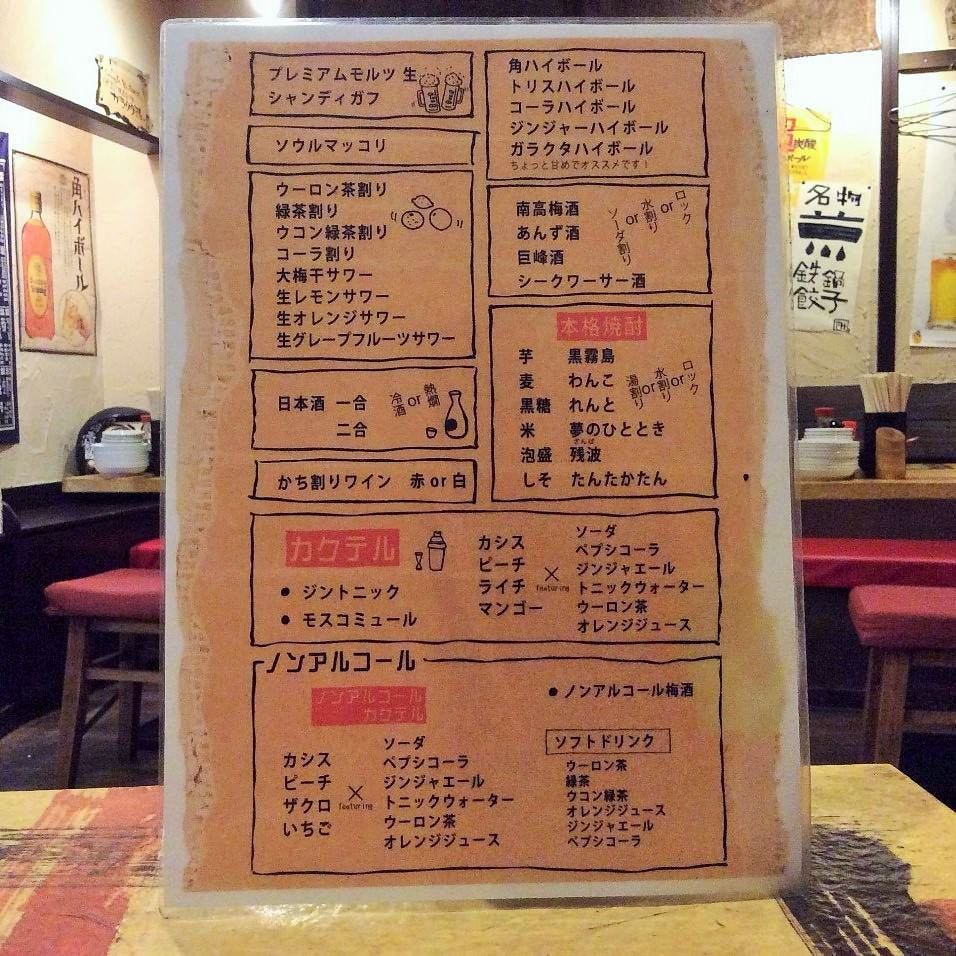 プレミアムモルツ 生
シャンディガフ
ソウルマッコリ
ウーロン茶割り
緑茶割り
ウコン緑茶割り
コーラ割り
大梅干サワー
生レモンサワー
生オレンジサワー
生グレープフルーツサワー
日本酒 一合
二合
冷酒 or 熱燗
かち割りワイン 赤 or 白
角ハイボール
トリスハイボール
コーラハイボール
ジンジャーハイボール
ガラクタハイボール
ちょっと甘めでオススメです!
南高梅酒
あんず酒
巨峰酒
シークワーサー酒
ロック
or
水割り
or
ソーダ割り
本格焼酎
芋 黒霧島
麦 わんこ
黒糖 れんと
米 夢のひととき
ざんぱ
泡盛 残波
しそ たんたかたん
ロック
or
水割り
or
湯割り
カクテル
● ジントニック
● モスコミュール
カシス
ピーチ
ライチ
マンゴー
×
featuring
ソーダ
ペプシコーラ
ジンジャエール
トニックウォーター
ウーロン茶
オレンジジュース
ノンアルコール
ノンアルコール
カクテル
カシス
ピーチ
ザクロ
いちご
×
featuring
ソーダ
ペプシコーラ
ジンジャエール
トニックウォーター
ウーロン茶
オレンジジュース
● ノンアルコール梅酒
ソフトドリンク
ウーロン茶
緑茶
ウコン緑茶
オレンジジュース
ジンジャエール
ペプシコーラ
角ハイボール
名物
鉄鍋
餃子